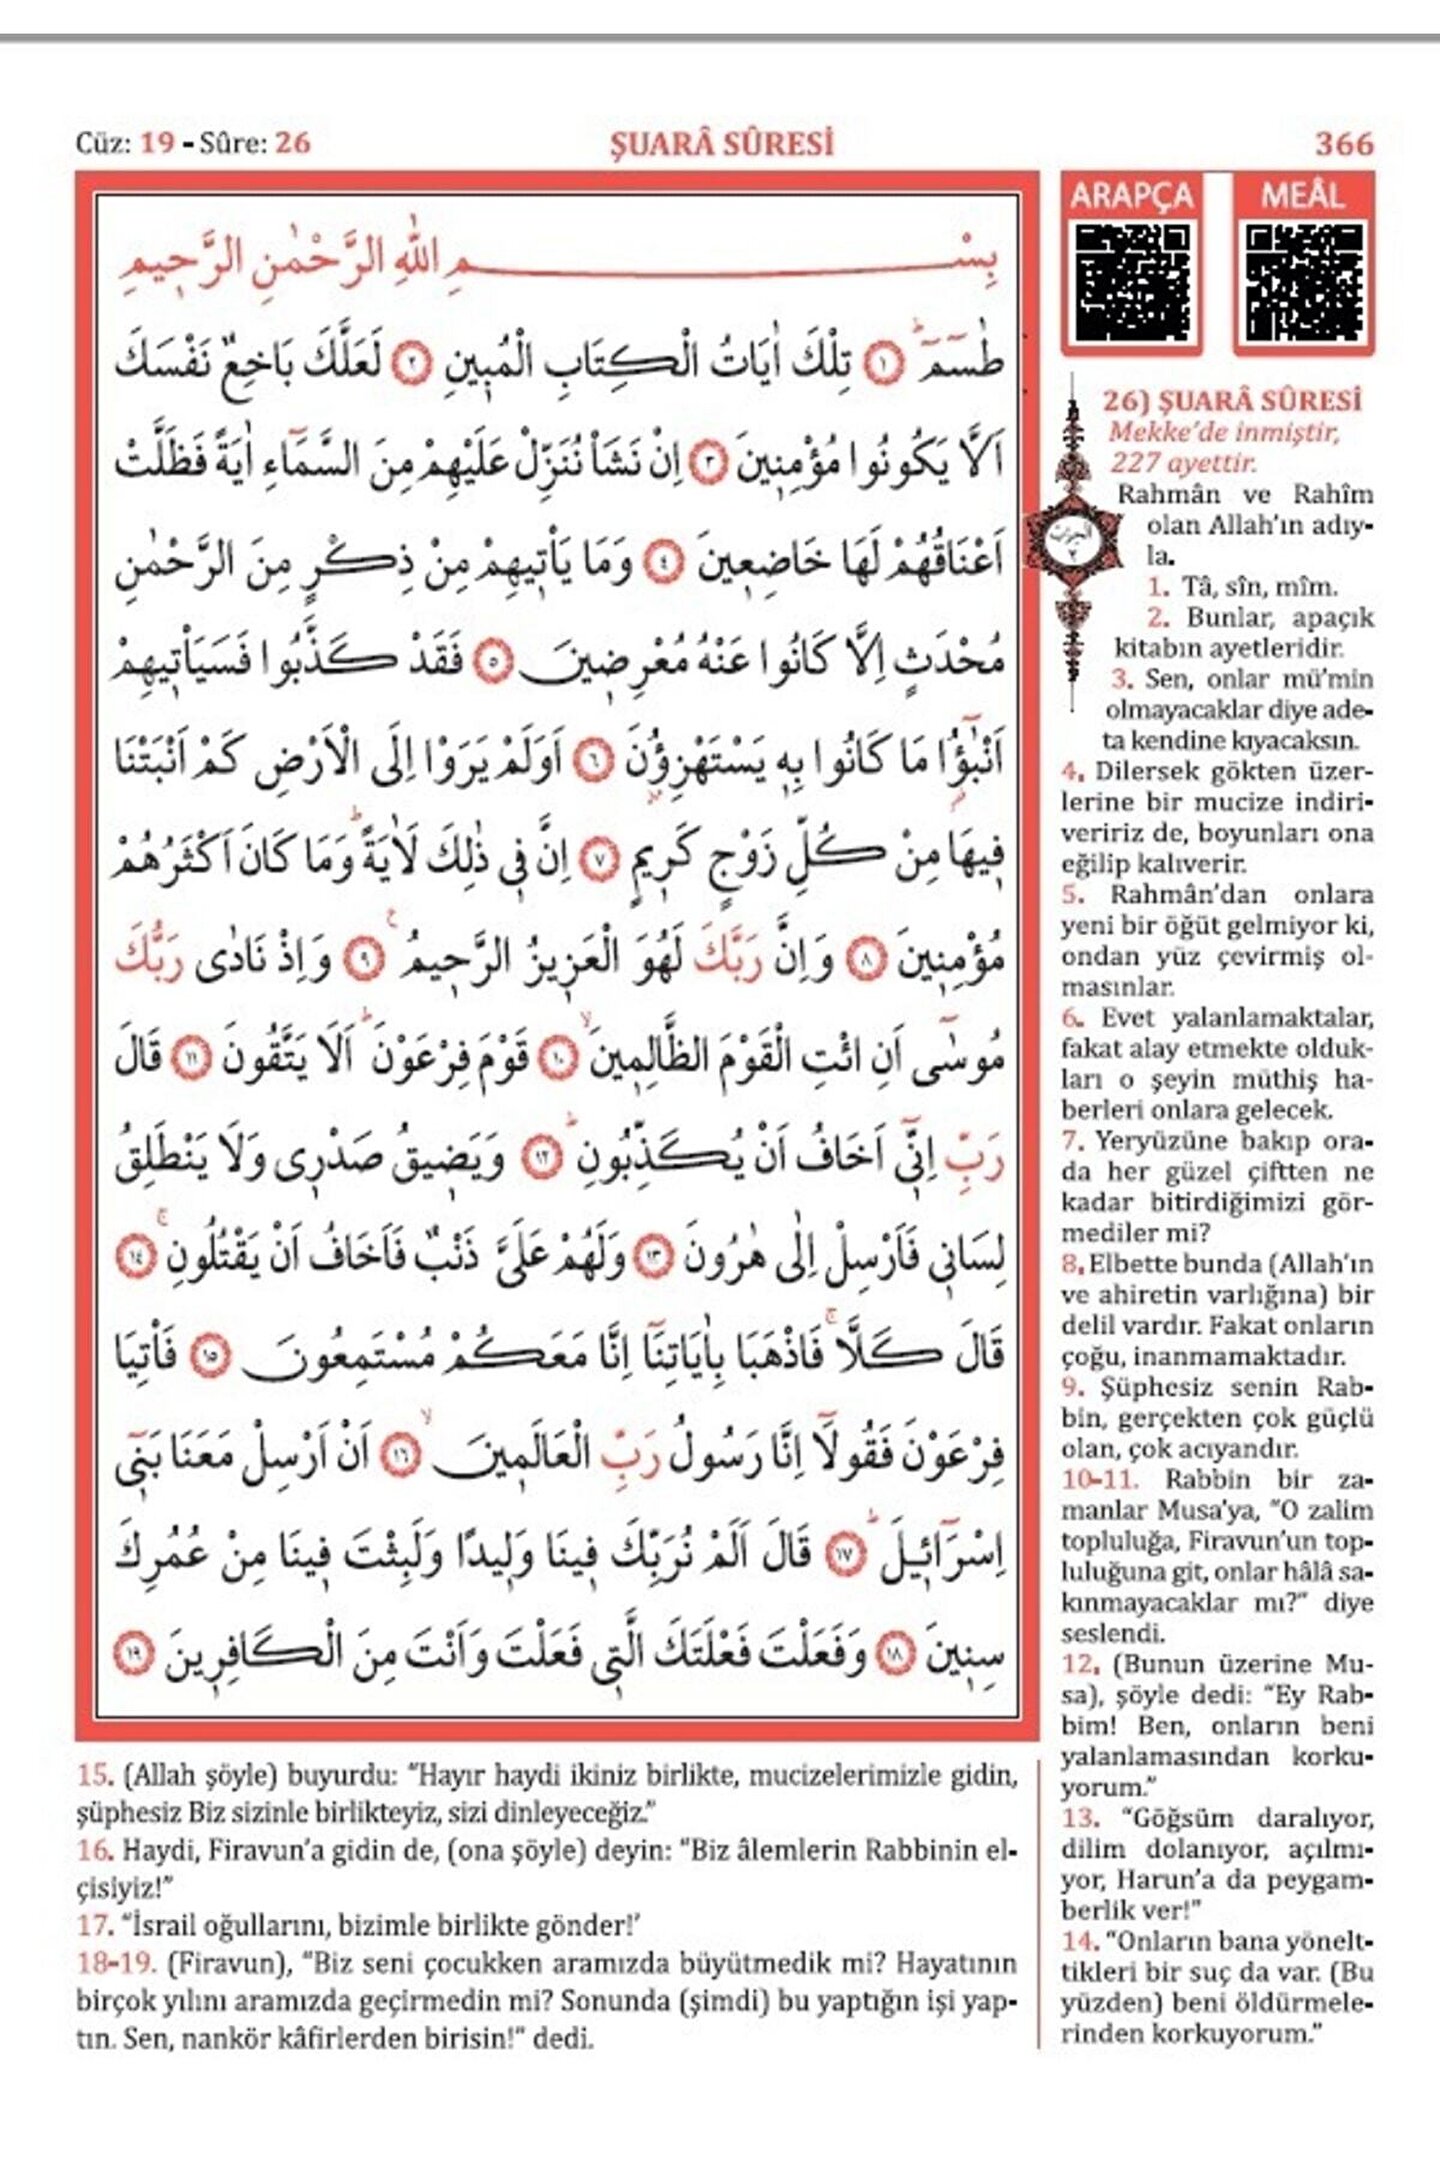 Cüz: 19 - Sûre: 26
ŞUARÂ SÛRESİ
366
بِسْمِ اللّٰهِ الرَّحْمٰنِ الرَّحٖيمِ
طٰسٓمٓ ﴿١﴾ تِلْكَ اٰيَاتُ الْكِتَابِ الْمُبٖينِ ﴿٢﴾ لَعَلَّكَ بَاخِعٌ نَفْسَكَ
اَلَّا يَكُونُوا مُؤْمِنٖينَ ﴿٣﴾ اِنْ نَشَأْ نُنَزِّلْ عَلَيْهِمْ مِنَ السَّمَٓاءِ اٰيَةً فَظَلَّتْ
اَعْنَاقُهُمْ لَهَا خَاضِعٖينَ ﴿٤﴾ وَمَا يَأْتٖيهِمْ مِنْ ذِكْرٍ مِنَ الرَّحْمٰنِ
مُحْدَثٍ اِلَّا كَانُوا عَنْهُ مُعْرِضٖينَ ﴿٥﴾ فَقَدْ كَذَّبُوا فَسَيَأْتٖيهِمْ
اَنْبٰٓؤُا مَا كَانُوا بِهٖ يَسْتَهْزِؤُنَ ﴿٦﴾ اَوَلَمْ يَرَوْا اِلَى الْاَرْضِ كَمْ اَنْبَتْنَا
فٖيهَا مِنْ كُلِّ زَوْجٍ كَرٖيمٍ ﴿٧﴾ اِنَّ فٖي ذٰلِكَ لَاٰيَةًؕ وَمَا كَانَ اَكْثَرُهُمْ
مُؤْمِنٖينَ ﴿٨﴾ وَاِنَّ رَبَّكَ لَهُوَ الْعَزٖيزُ الرَّحٖيمُ ﴿٩﴾ وَاِذْ نَادٰى رَبُّكَ
مُوسٰٓى اَنِ ائْتِ الْقَوْمَ الظَّالِمٖينَۙ ﴿١٠﴾ قَوْمَ فِرْعَوْنَؕ اَلَا يَتَّقُونَ ﴿١١﴾ قَالَ
رَبِّ اِنّٖٓي اَخَافُ اَنْ يُكَذِّبُونِؕ ﴿١٢﴾ وَيَضٖيقُ صَدْرٖي وَلَا يَنْطَلِقُ
لِسَانٖي فَاَرْسِلْ اِلٰى هٰرُونَ ﴿١٣﴾ وَلَهُمْ عَلَيَّ ذَنْبٌ فَاَخَافُ اَنْ يَقْتُلُونِۚ ﴿١٤﴾
قَالَ كَلَّاۚ فَاذْهَبَا بِاٰيَاتِنَٓا اِنَّا مَعَكُمْ مُسْتَمِعُونَ ﴿١٥﴾ فَأْتِيَا
فِرْعَوْنَ فَقُولَٓا اِنَّا رَسُولُ رَبِّ الْعَالَمٖينَۙ ﴿١٦﴾ اَنْ اَرْسِلْ مَعَنَا بَنٖٓي
اِسْرَٓائٖيلَؕ ﴿١٧﴾ قَالَ اَلَمْ نُرَبِّكَ فٖينَا وَلٖيدًا وَلَبِثْتَ فٖينَا مِنْ عُمُرِكَ
سِنٖينَ ﴿١٨﴾ وَفَعَلْتَ فَعْلَتَكَ الَّتٖي فَعَلْتَ وَاَنْتَ مِنَ الْكَافِرٖينَ ﴿١٩﴾
ARAPÇA
MEÂL
26) ŞUARÂ SÛRESİ
Mekke'de inmiştir,
227 ayettir.
Rahmân ve Rahîm
olan Allah'ın adıy-
la.
1. Tâ, sîn, mîm.
2. Bunlar, apaçık
kitabın ayetleridir.
3. Sen, onlar mü'min
olmayacaklar diye ade-
ta kendine kıyacaksın.
4. Dilersek gökten üzer-
lerine bir mucize indiri-
veririz de, boyunları ona
eğilip kalıverir.
5. Rahmân'dan onlara
yeni bir öğüt gelmiyor ki,
ondan yüz çevirmiş ol-
masınlar.
6. Evet yalanlamaktalar,
fakat alay etmekte olduk-
ları o şeyin müthiş ha-
berleri onlara gelecek.
7. Yeryüzüne bakıp ora-
da her güzel çiftten ne
kadar bitirdiğimizi gör-
mediler mi?
8. Elbette bunda (Allah'ın
ve ahiretin varlığına) bir
delil vardır. Fakat onların
çoğu, inanmamaktadır.
9. Şüphesiz senin Rab-
bin, gerçekten çok güçlü
olan, çok acıyandır.
10-11. Rabbin bir za-
manlar Musa'ya, "O zalim
topluluğa, Firavun'un top-
luluğuna git, onlar hâlâ sa-
kınmayacaklar mı?" diye
seslendi.
12. (Bunun üzerine Mu-
sa), şöyle dedi: "Ey Rab-
bim! Ben, onların beni
yalanlamasından korku-
yorum."
13. "Göğsüm daralıyor,
dilim dolanıyor, açılmı-
yor, Harun'a da peygam-
berlik ver!"
14. "Onların bana yönelt-
tikleri bir suç da var. (Bu
yüzden) beni öldürmele-
rinden korkuyorum."
15. (Allah şöyle) buyurdu: "Hayır haydi ikiniz birlikte, mucizelerimizle gidin,
şüphesiz Biz sizinle birlikteyiz, sizi dinleyeceğiz."
16. Haydi, Firavun'a gidin de, (ona şöyle) deyin: "Biz âlemlerin Rabbinin el-
çisiyiz!"
17. "İsrail oğullarını, bizimle birlikte gönder!'
18-19. (Firavun), "Biz seni çocukken aramızda büyütmedik mi? Hayatının
birçok yılını aramızda geçirmedin mi? Sonunda (şimdi) bu yaptığın işi yap-
tın. Sen, nankör kâfirlerden birisin!" dedi.